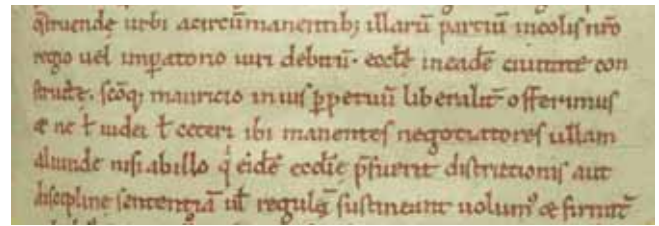 q̄struende urbi acircūmanentib; illarū partiū incolis nr̄o
regio uel imp̱atorio iuri debitū. eccłe ineadē ciuitate con
structe. scōq; mauricio inius p̱petuū liberalit̄ offerimus
⁊ ne ł iudei ł ceteri ibi manentes negotiatores ullam
aliunde nisi abillo q' eidē eccłie p̄fuerit districtionis aut
discipline sententiā uł regulę sustineant uolum⁹ ⁊ firmit̄